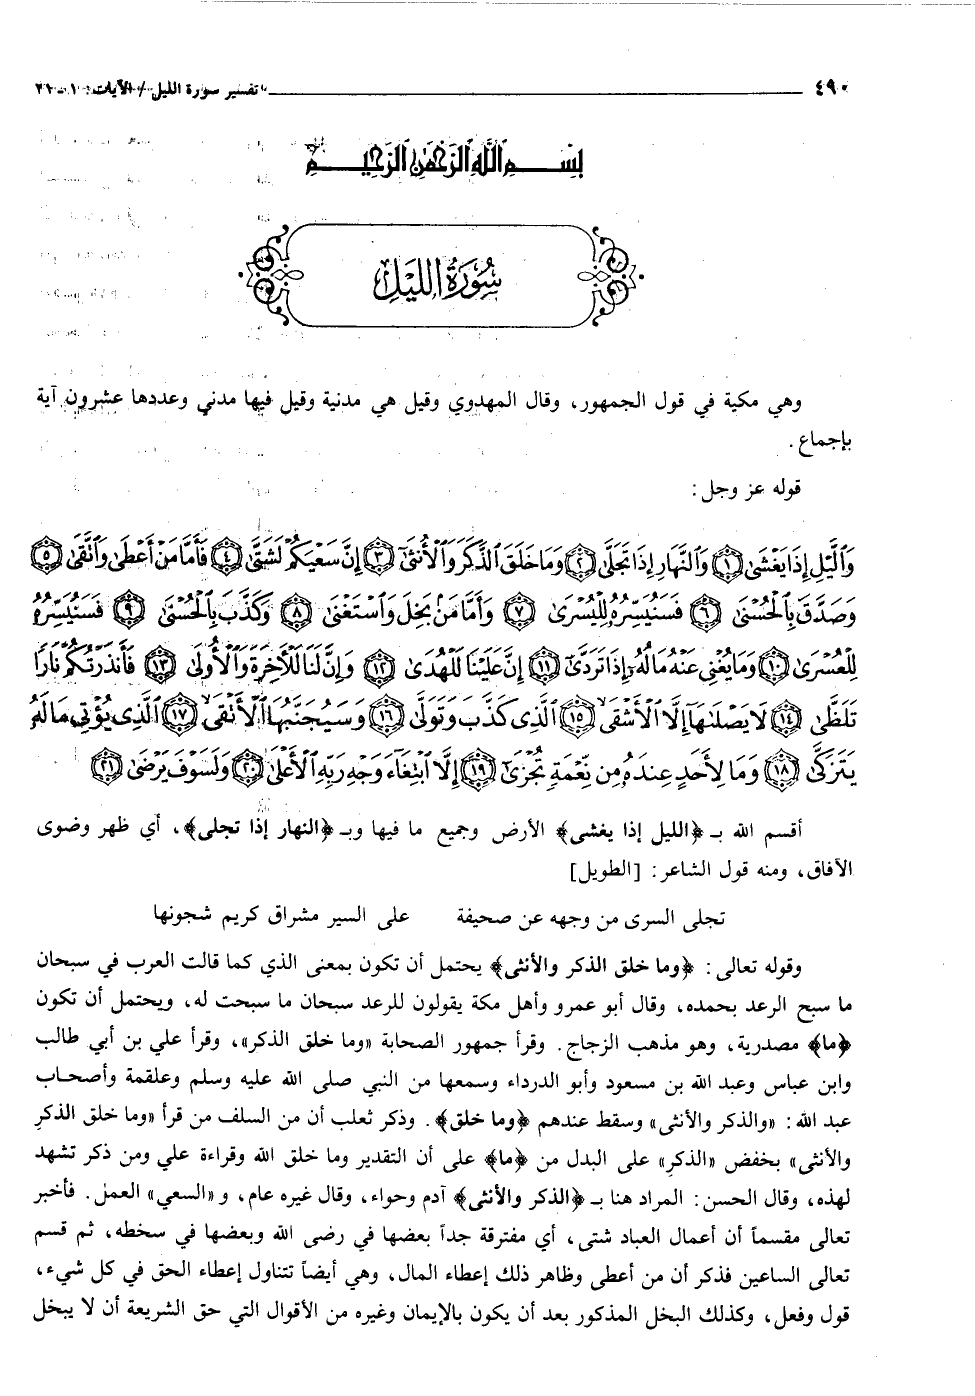 ٤٩٠ تفسير سورة الليل / الآيات: ١ - ٢١
بسم الله الرحمن الرحيم
سورة الليل
وهي مكية في قول الجمهور، وقال المهدوي وقيل هي مدنية وقيل فيها مدني وعددها عشرون آية
بإجماع.
قوله عز وجل:
وَٱلَّيْلِ إِذَا يَغْشَىٰ ١ وَٱلنَّهَارِ إِذَا تَجَلَّىٰ ٢ وَمَا خَلَقَ ٱلذَّكَرَ وَٱلْأُنثَىٰٓ ٣ إِنَّ سَعْيَكُمْ لَشَتَّىٰ ٤ فَأَمَّا مَنْ أَعْطَىٰ وَٱتَّقَىٰ ٥
وَصَدَّقَ بِٱلْحُسْنَىٰ ٦ فَسَنُيَسِّرُهُۥ لِلْيُسْرَىٰ ٧ وَأَمَّا مَنۢ بَخِلَ وَٱسْتَغْنَىٰ ٨ وَكَذَّبَ بِٱلْحُسْنَىٰ ٩ فَسَنُيَسِّرُهُۥ
لِلْعُسْرَىٰ ١٠ وَمَا يُغْنِى عَنْهُ مَالُهُۥٓ إِذَا تَرَدَّىٰٓ ١١ إِنَّ عَلَيْنَا لَلْهُدَىٰ ١٢ وَإِنَّ لَنَا لَلْـَٔاخِرَةَ وَٱلْأُولَىٰ ١٣ فَأَنذَرْتُكُمْ نَارًا
تَلَظَّىٰ ١٤ لَا يَصْلَىٰهَآ إِلَّا ٱلْأَشْقَى ١٥ ٱلَّذِى كَذَّبَ وَتَوَلَّىٰ ١٦ وَسَيُجَنَّبُهَا ٱلْأَتْقَى ١٧ ٱلَّذِى يُؤْتِى مَالَهُۥ
يَتَزَكَّىٰ ١٨ وَمَا لِأَحَدٍ عِندَهُۥ مِن نِّعْمَةٍ تُجْزَىٰٓ ١٩ إِلَّا ٱبْتِغَآءَ وَجْهِ رَبِّهِ ٱلْأَعْلَىٰ ٢٠ وَلَسَوْفَ يَرْضَىٰ ٢١
أقسم الله بـ ﴿الليل إذا يغشى﴾ الأرض وجميع ما فيها وبـ ﴿النهار إذا تجلى﴾، أي ظهر وضوى
الآفاق، ومنه قول الشاعر: [الطويل]
تجلى السرى من وجهه عن صحيفة على السير مشراق كريم شجونها
وقوله تعالى: ﴿وما خلق الذكر والأنثى﴾ يحتمل أن تكون بمعنى الذي كما قالت العرب في سبحان
ما سبح الرعد بحمده، وقال أبو عمرو وأهل مكة يقولون للرعد سبحان ما سبحت له، ويحتمل أن تكون
﴿ما﴾ مصدرية، وهو مذهب الزجاج. وقرأ جمهور الصحابة «وما خلق الذكر»، وقرأ علي بن أبي طالب
وابن عباس وعبد الله بن مسعود وأبو الدرداء وسمعها من النبي صلى الله عليه وسلم وعلقمة وأصحاب
عبد الله: «والذكر والأنثى» وسقط عندهم ﴿وما خلق﴾. وذكر ثعلب أن من السلف من قرأ «وما خلق الذكرِ
والأنثى» بخفض «الذكرِ» على البدل من ﴿ما﴾ على أن التقدير وما خلق الله وقراءة علي ومن ذكر تشهد
لهذه، وقال الحسن: المراد هنا بـ ﴿الذكر والأنثى﴾ آدم وحواء، وقال غيره عام، و «السعي» العمل. فأخبر
تعالى مقسماً أن أعمال العباد شتى، أي مفترقة جداً بعضها في رضى الله وبعضها في سخطه، ثم قسم
تعالى الساعين فذكر أن من أعطى وظاهر ذلك إعطاء المال، وهي أيضاً تتناول إعطاء الحق في كل شيء،
قول وفعل، وكذلك البخل المذكور بعد أن يكون بالإيمان وغيره من الأقوال التي حق الشريعة أن لا يبخل